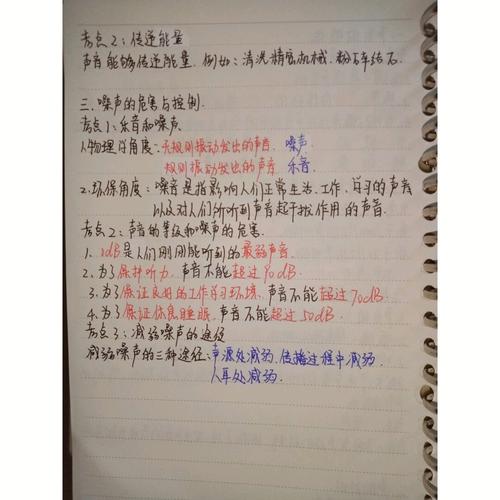 考点2：传递能量
声音能够传递能量．例如：清洗精密机械、粉碎结石．
三．噪声的危害与控制．
考点1：乐音和噪声
1.物理学角度：无规则振动发出的声音 噪声
规则振动发出的声音 乐音
2.环保角度：噪音是指影响人们正常生活、工作、学习的声音
以及对人们所听到声音起干扰作用的声音．
考点2：声音的等级和噪声的危害．
1. 1dB是人们刚刚能听到的最弱声音．
2.为了保护听力，声音不能超过90dB．
3.为了保证良好的工作学习环境，声音不能超过70dB．
4.为了保证休息睡眠，声音不能超过50dB．
考点3：减弱噪声的途径
减弱噪声的三种途径：声源处减弱、传播过程中减弱、
人耳处减弱．